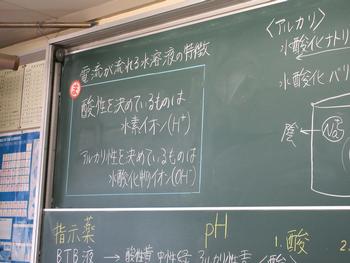 電流が流れる水溶液の特徴
ま
酸性を決めているものは
水素イオン(H⁺)
アルカリ性を決めているものは
水酸化物イオン(OH⁻)
〈アルカリ〉
水酸化ナトリ
水酸化バリ
陰
Na
指示薬
pH
1. 酸
2.
BTB液 → 酸性黄 中性緑 アルカリ性青